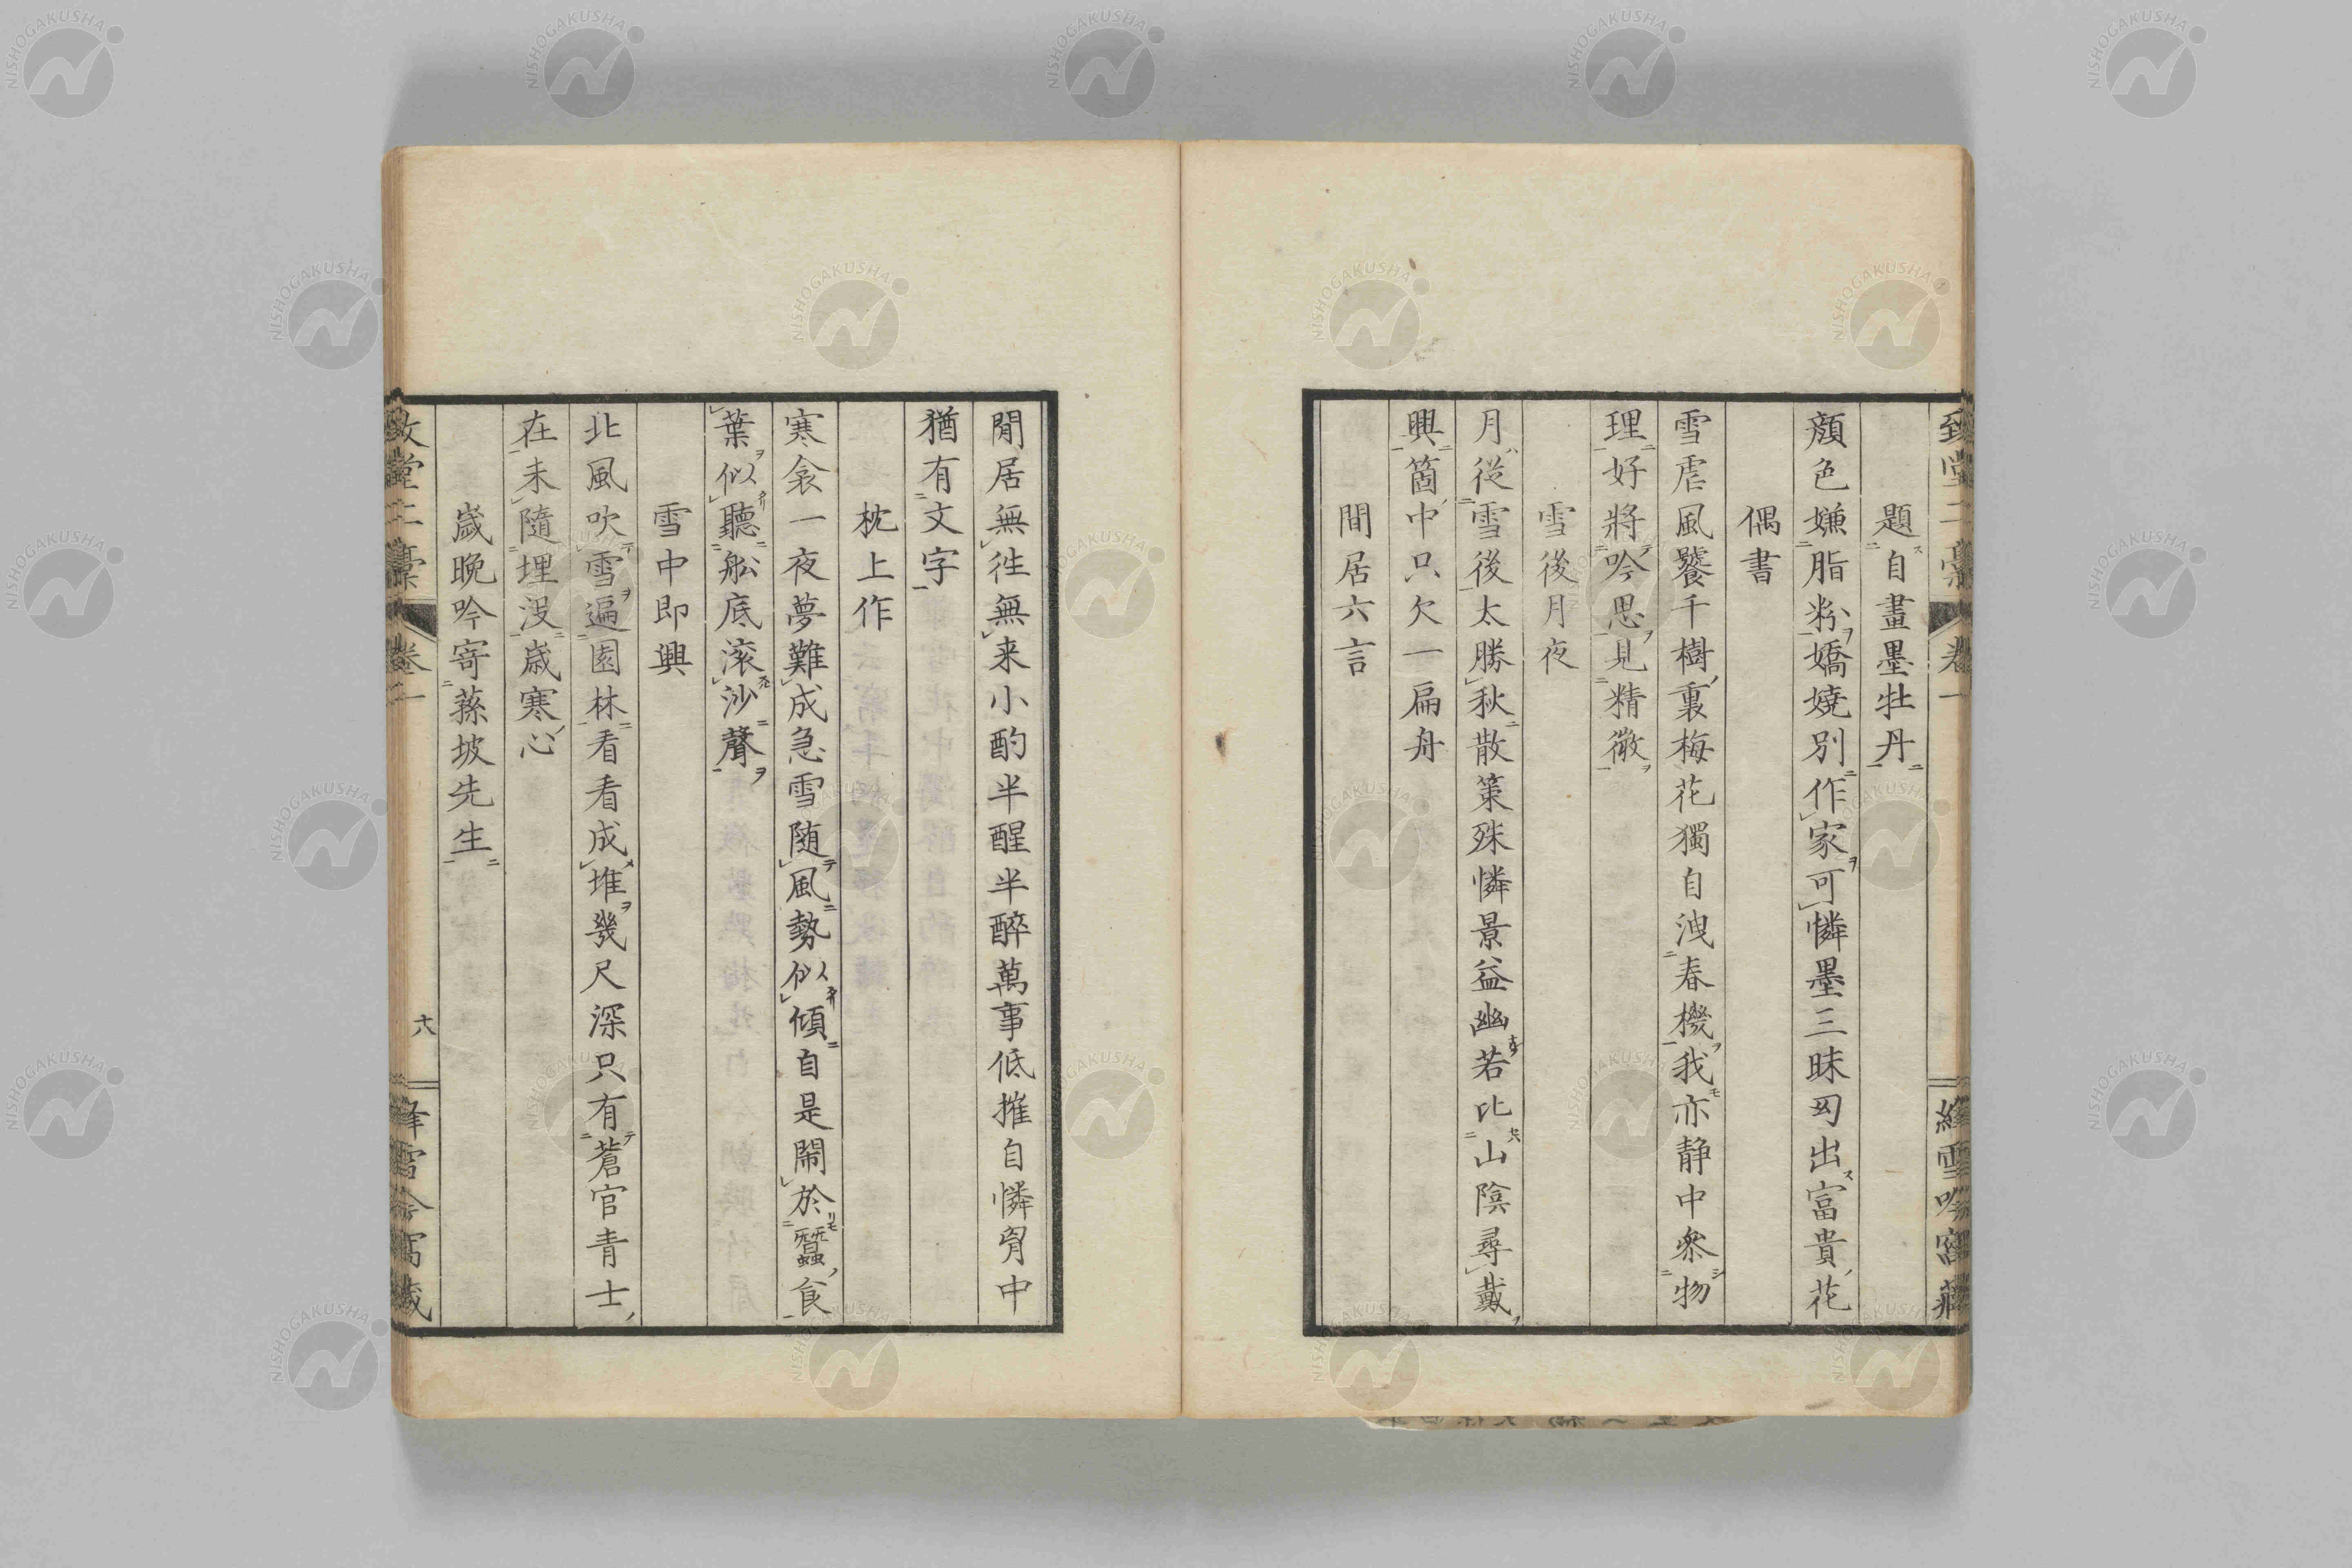 題自畫墨牡丹
顔色嫌脂粉嬌嬈別作家可憐墨三昧囡出富貴花
偶書
雪虐風饕千樹裏梅花獨自洩春機我亦静中叅物
理好將吟思見精微
雪後月夜
月從雪後太勝秋散策殊憐景益幽若比山陰尋戴
興箇中只欠一扁舟
間居六言
閒居無徃無来小酌半醒半醉萬事低摧自憐胷中
猶有文字
枕上作
寒衾一夜夢難成急雪随風勢似傾自是閙於蠶食
葉似聽舩底滚沙聲
雪中即興
北風吹雪遍園林看看成堆幾尺深只有蒼官青士
在未隨埋没歳寒心
歳晩吟寄蓀坡先生
卷一
絳雪吟窩藏
十八
NISHOGAKUSHA